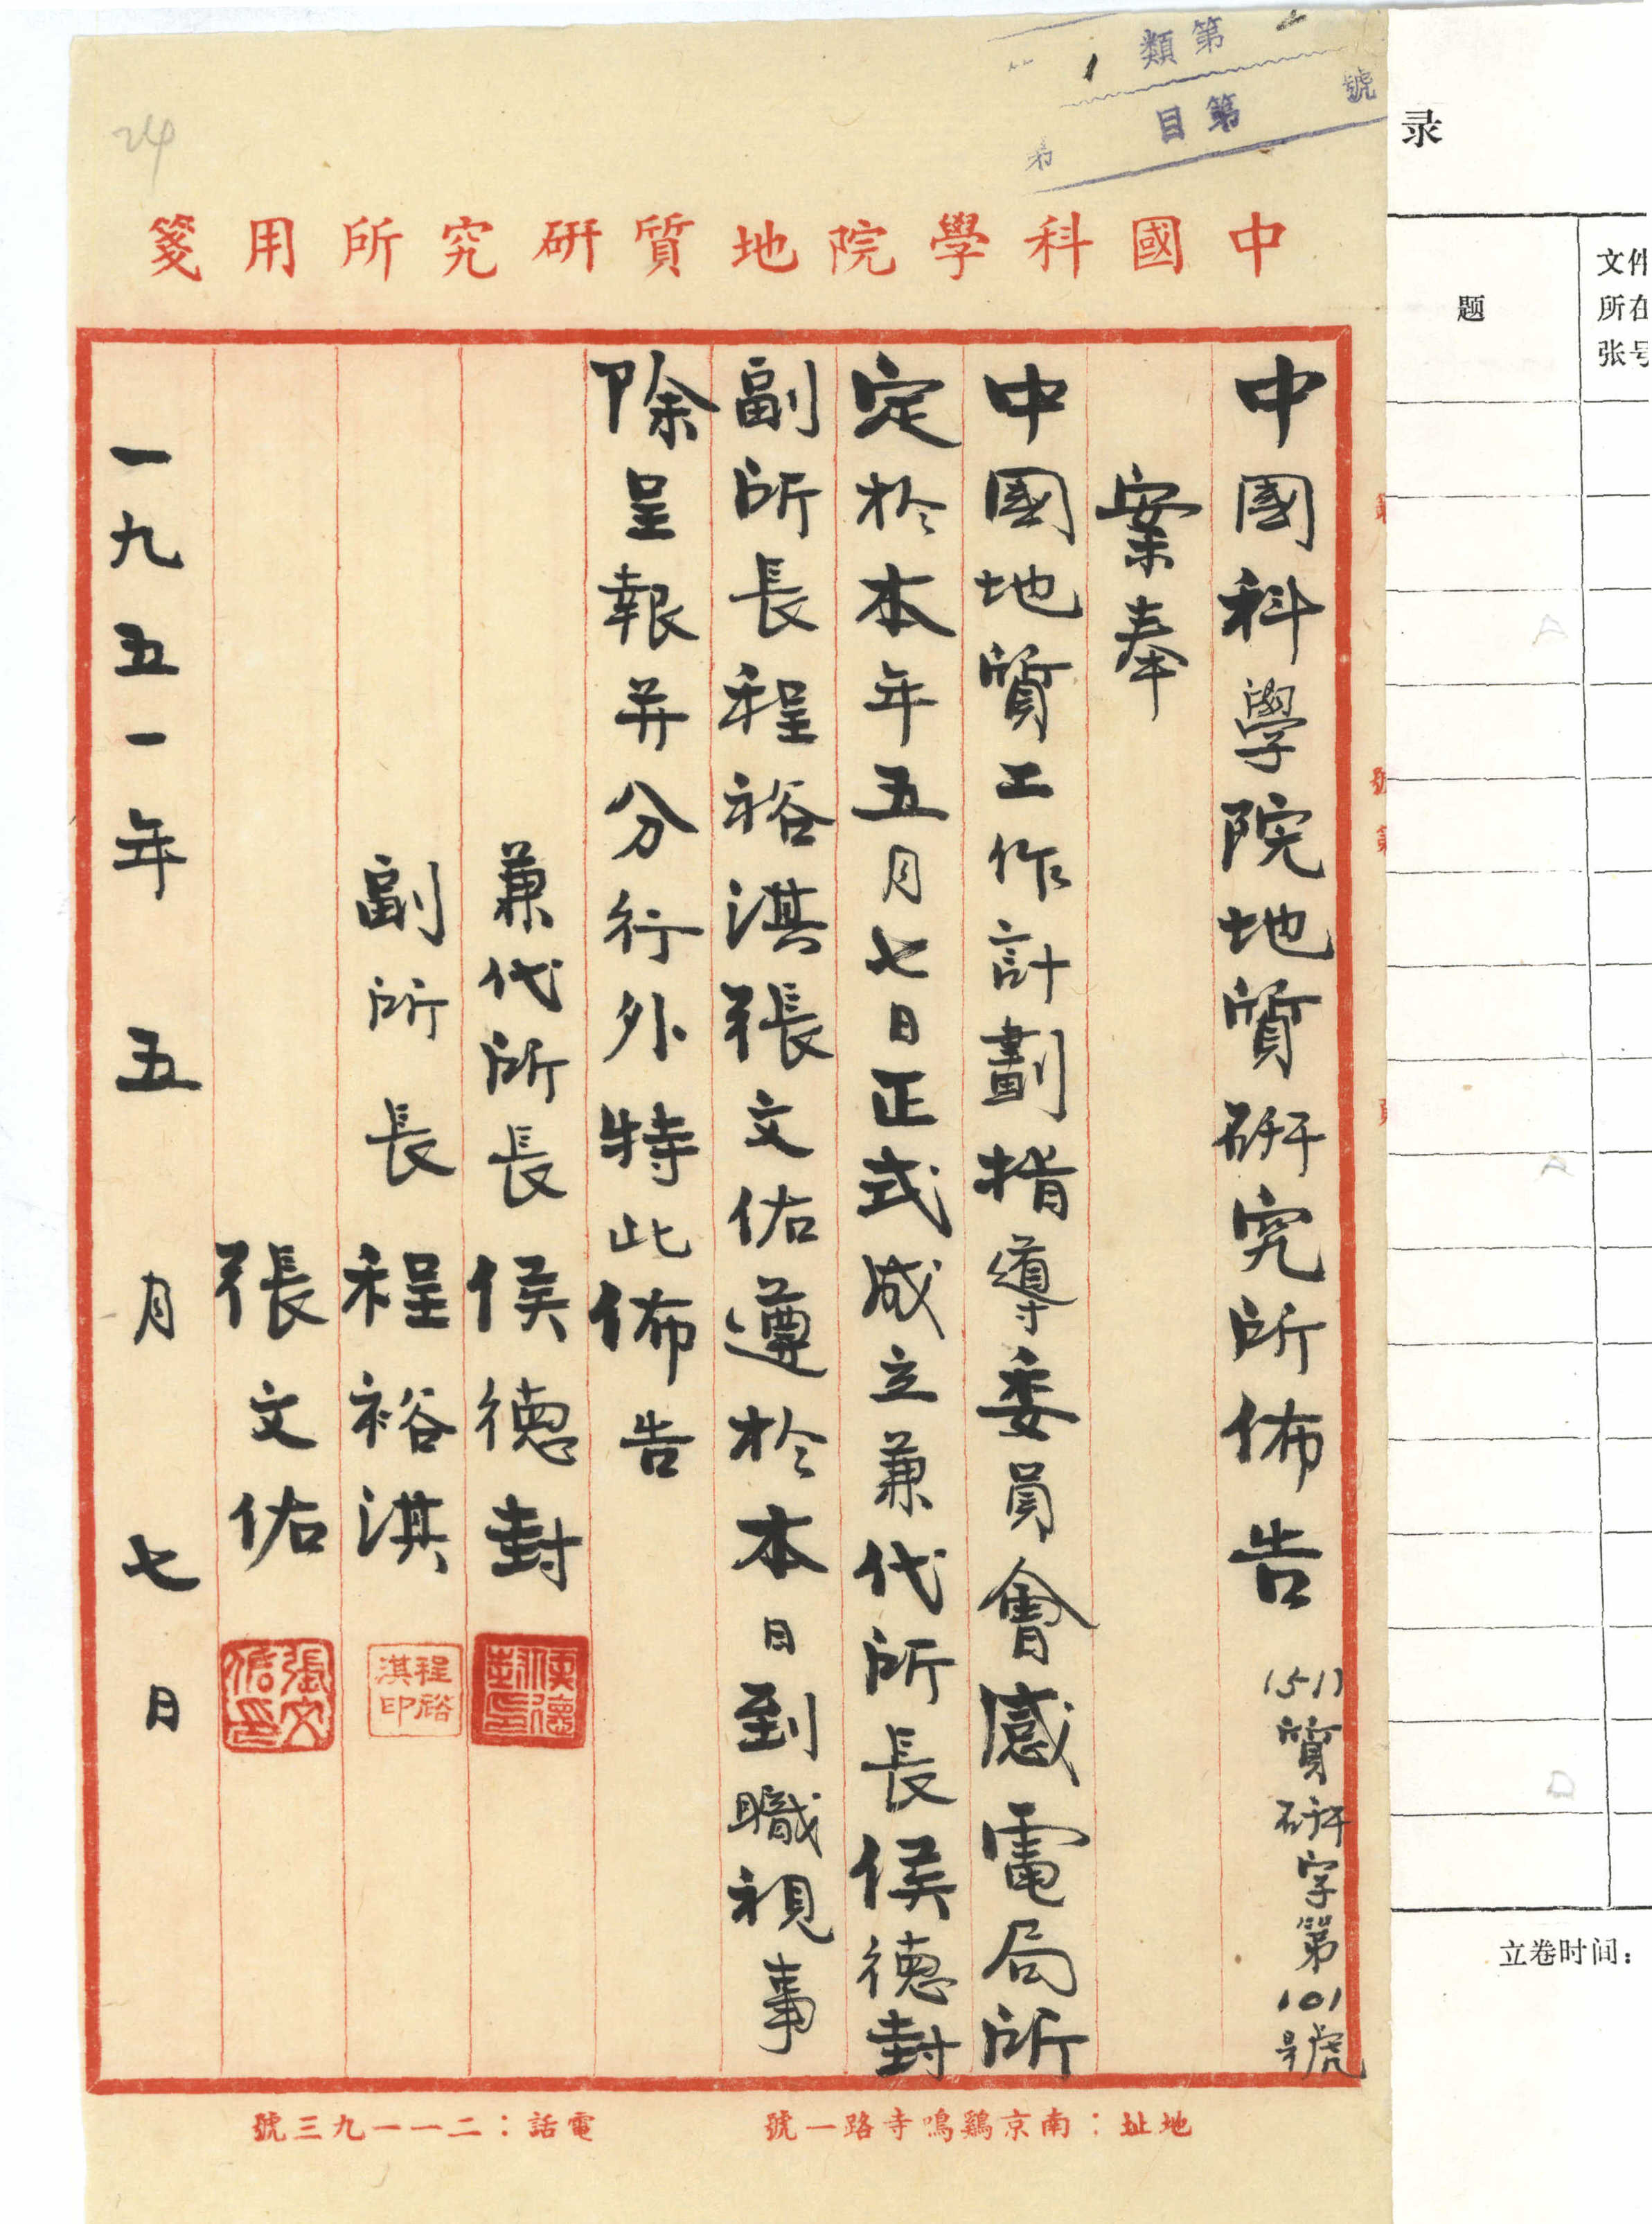 類第
號
目第
24
中國科學院地質研究所用箋
中國科學院地質研究所佈告
(51)質研字第101號
案奉
中國地質工作計劃指導委員會感電局所
定於本年五月七日正式成立兼代所長侯德封
副所長程裕淇張文佑遵於本日到職視事
除呈報并分行外特此佈告
兼代所長侯德封
侯德封印
副所長程裕淇
程裕淇印
張文佑
張文佑印
一九五一年五月七日
地址：南京鷄鳴寺路一號
電話：二一一九三號
录
题
文件
所在
张号
立卷时间：